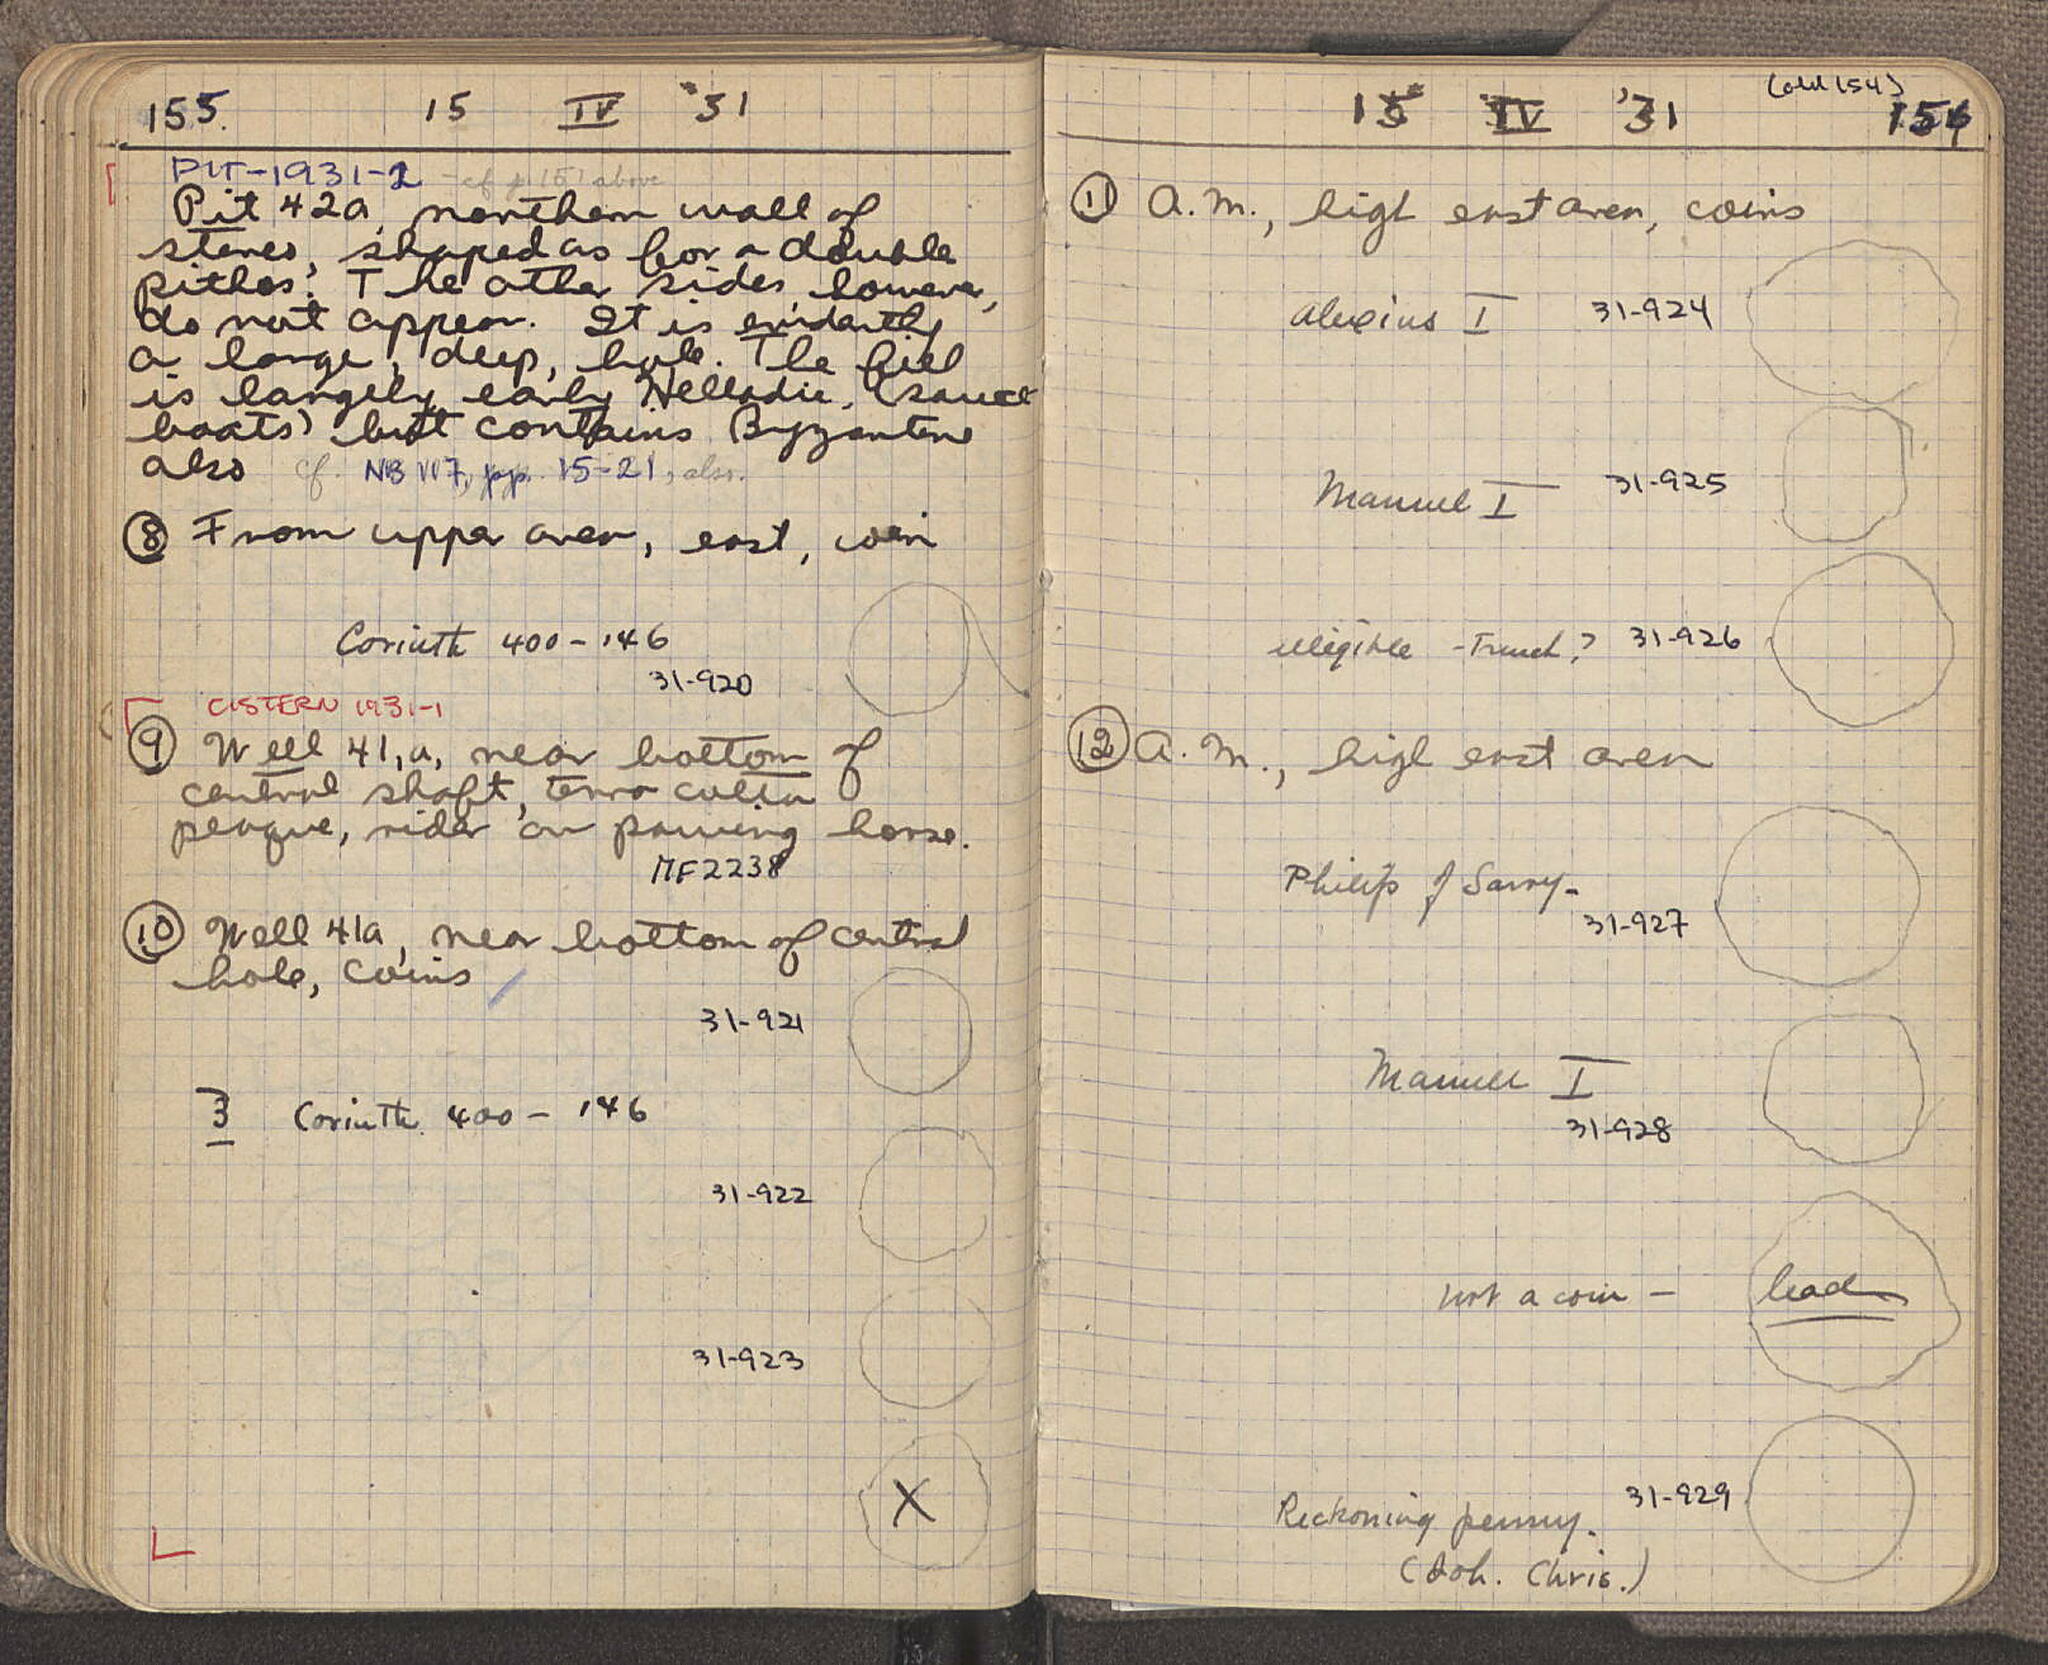 155. 15 IV '31
PIT-1931-2 - cf p. 151 above
Pit 42a, northern wall of
stones, shaped as for a double
pithos. The other sides, however,
do not appear. It is evidently
a large, deep, hole. The fill
is largely early Helladic, (sauce
boats) but contains Byzantine
also cf. NB 117, pp. 15-21, also.
8 From upper area, east, coin
Corinth 400 - 146
31-920
CISTERN 1931-1
9 Well 41,a, near bottom of
central shaft, terra cotta
plaque, rider on pawing horse.
MF2238
10 Well 41a, near bottom of central
hole, coins
31-921
3 Corinth 400 - 146
31-922
31-923
X
(old 154)
15 IV '31 156
11 A.M., high east area, coins
Alexius I 31-924
Manuel I 31-925
illegible - Trench? 31-926
12 A.M., high east area
Philip of Savoy-
31-927
Manuel I
31-928
not a coin - lead
31-929
Reckoning penny.
(Joh. Chris.)